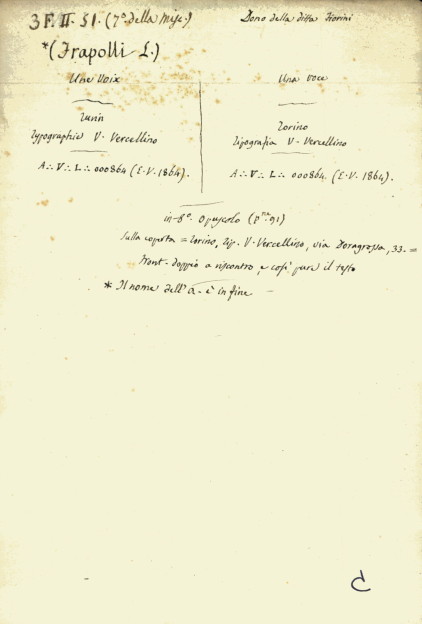 3 F. II. 51. (7º della Misc.)
Dono della ditta Fiorini
*(Frapolli L.)
Une Voix
Turin
Typographie V. Vercellino
A∴ V∴ L∴ 000864 (E. V. 1864).
Una voce
Torino
Tipografia V. Vercellino
A∴ V∴ L∴ 000864. (E. V. 1864).
in-8º. Opuscolo (pne 91)
Sulla coperta = Torino, Tip. V. Vercellino, via Doragrossa, 33. =
Front. doppio a riscontro, e così pure il testo
* Il nome dell' a. è in fine
C